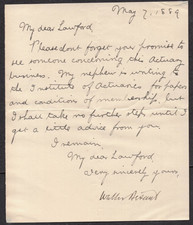 May 7. 1889
My dear Lawford
Please dont forget your promise to
see someone concerning the Actuary
business. My nephew is writing to
the Institute of Actuaries for papers
and condition of membership but
I shall take no further steps until I
get a little advice from you
I remain
My dear Lawford
Very sincerely yours
Walter Besant